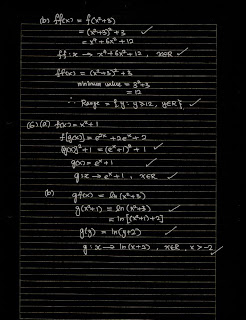 (b) ff(x) = f(x²+3)
= (x²+3)² + 3
= x⁴ + 6x² + 12
ff : x → x⁴ + 6x² + 12 , x∈R
ff(x) = (x²+3)² + 3
minimum value = 3² + 3
= 12
∴ Range = { y : y ≥ 12, y∈R }
(6) (a) f(x) = x² + 1
f[g(x)] = e²ˣ + 2eˣ + 2
[g(x)]² + 1 = (eˣ + 1)² + 1
g(x) = eˣ + 1
g : x → eˣ + 1 , x∈R
(b) gf(x) = ln (x² + 3)
g(x²+1) = ln (x² + 3)
= ln [(x²+1) + 2]
g(y) = ln (y+2)
g : x → ln (x+2) , x∈R, x > -2